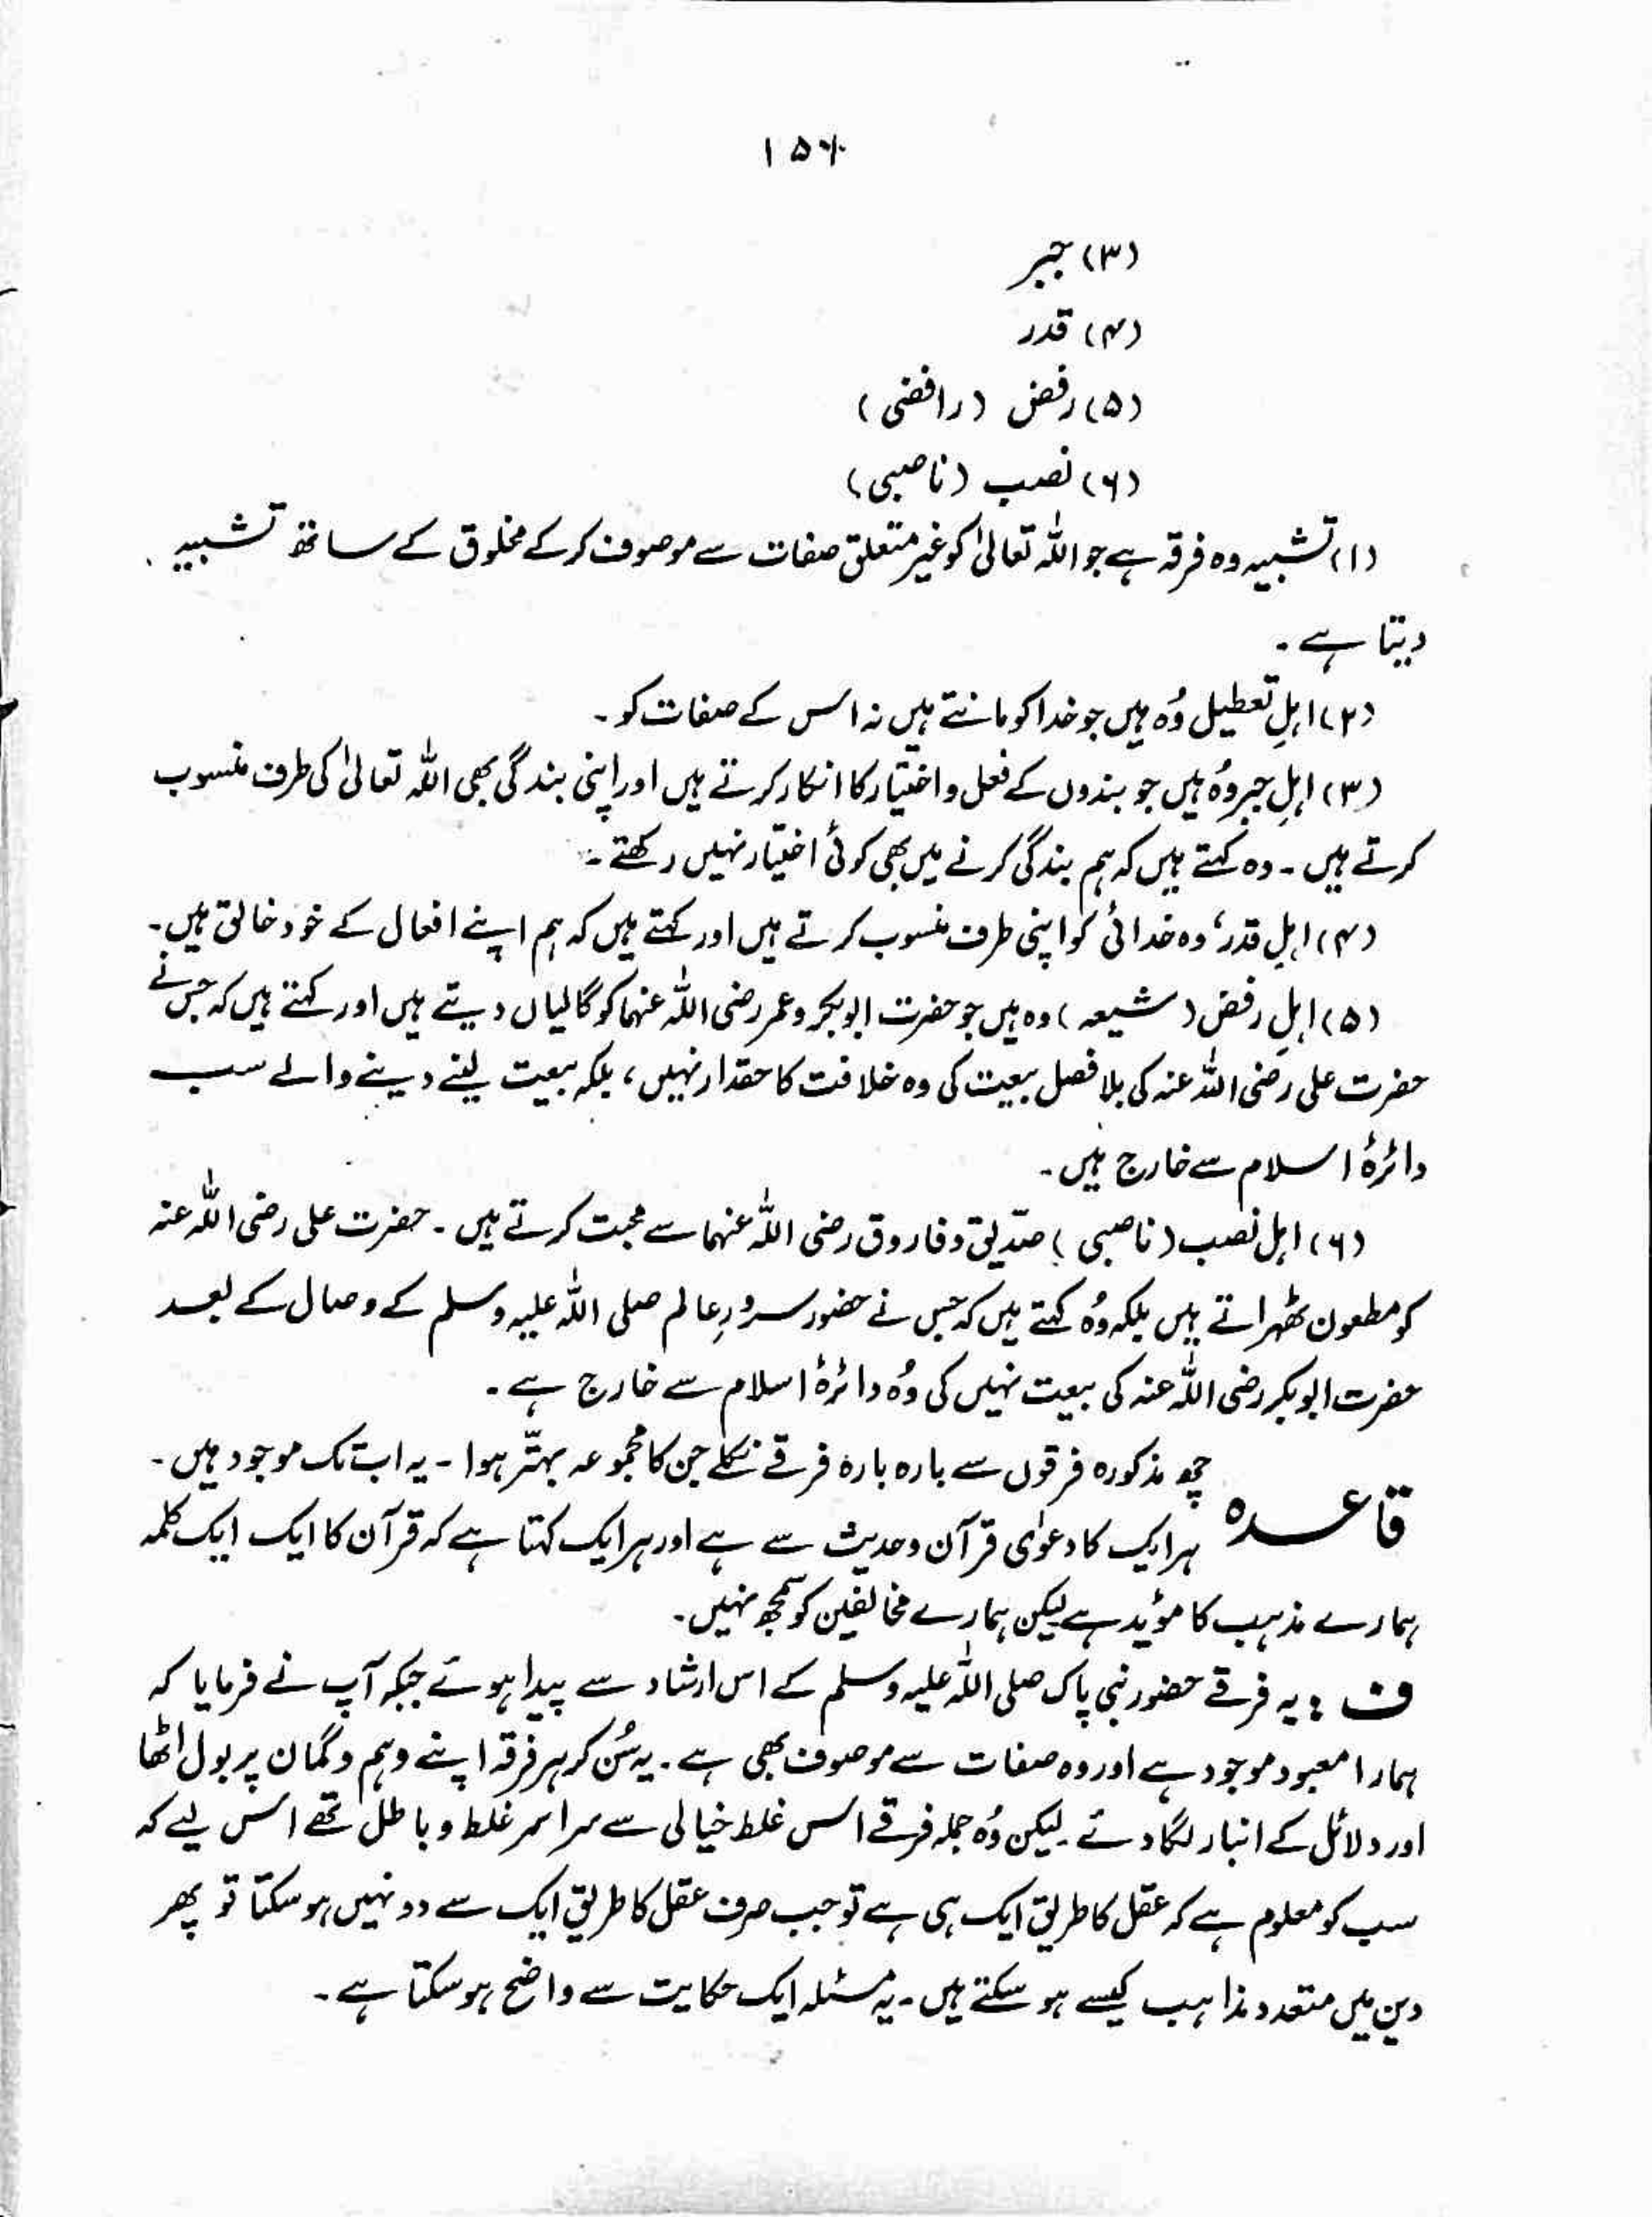 (۳) جبر
(۴) قدر
(۵) رفض (رافضی)
(۶) نصب (ناصبی)
(۱) تشبیہ وہ فرقہ ہے جو اللہ تعالیٰ کو غیر متعلق صفات سے موصوف کرکے مخلوق کے ساتھ تشبیہ
دیتا ہے۔
(۲) اہلِ تعطیل وُہ ہیں جو خدا کو مانتے ہیں نہ اس کے صفات کو۔
(۳) اہلِ جبر وُہ ہیں جو بندوں کے فعل و اختیار کا انکار کرتے ہیں اور اپنی بندگی بھی اللہ تعالیٰ کی طرف منسوب
کرتے ہیں۔ وہ کہتے ہیں کہ ہم بندگی کرنے میں بھی کوئی اختیار نہیں رکھتے۔
(۴) اہلِ قدر، وہ خدائی کو اپنی طرف منسوب کرتے ہیں اور کہتے ہیں کہ ہم اپنے افعال کے خود خالق ہیں۔
(۵) اہلِ رفض (شیعہ) وہ ہیں جو حضرت ابوبکر و عمر رضی اللہ عنہما کو گالیاں دیتے ہیں اور کہتے ہیں کہ جس نے
حضرت علی رضی اللہ عنہ کی بلا فصل بیعت کی وہ خلافت کا حقدار نہیں، بلکہ بیعت لینے دینے والے سب
دائرۂ اسلام سے خارج ہیں۔
(۶) اہل نصب (ناصبی) صدّیق و فاروق رضی اللہ عنہما سے محبت کرتے ہیں۔ حضرت علی رضی اللہ عنہ
کو مطعون ٹھہراتے ہیں بلکہ وُہ کہتے ہیں کہ جس نے حضور سرورِ عالم صلی اللہ علیہ وسلم کے وصال کے بعد
حضرت ابوبکر رضی اللہ عنہ کی بیعت نہیں کی وُہ دائرۂ اسلام سے خارج ہے۔
چھ مذکورہ فرقوں سے بارہ بارہ فرقے نکلے جن کا مجموعہ بہتّر ہوا۔ یہ اب تک موجود ہیں۔
قاعدہ ہر ایک کا دعوٰی قرآن و حدیث سے ہے اور ہر ایک کہتا ہے کہ قرآن کا ایک ایک کلمہ
ہمارے مذہب کا مؤید ہے لیکن ہمارے مخالفین کو سمجھ نہیں۔
ف : یہ فرقے حضور نبی پاک صلی اللہ علیہ وسلم کے اس ارشاد سے پیدا ہوئے جبکہ آپ نے فرمایا کہ
ہمارا معبود موجود ہے اور وہ صفات سے موصوف بھی ہے۔ یہ سُن کر ہر فرقہ اپنے وہم و گمان پر بول اٹھا
اور دلائل کے انبار لگا دئے لیکن وُہ جملہ فرقے اس غلط خیالی سے سراسر غلط و باطل تھے اس لیے کہ
سب کو معلوم ہے کہ عقل کا طریق ایک ہی ہے تو جب صرف عقل کا طریق ایک سے دو نہیں ہو سکتا تو پھر
دین میں متعدد مذاہب کیسے ہو سکتے ہیں۔ یہ مسئلہ ایک حکایت سے واضح ہو سکتا ہے۔